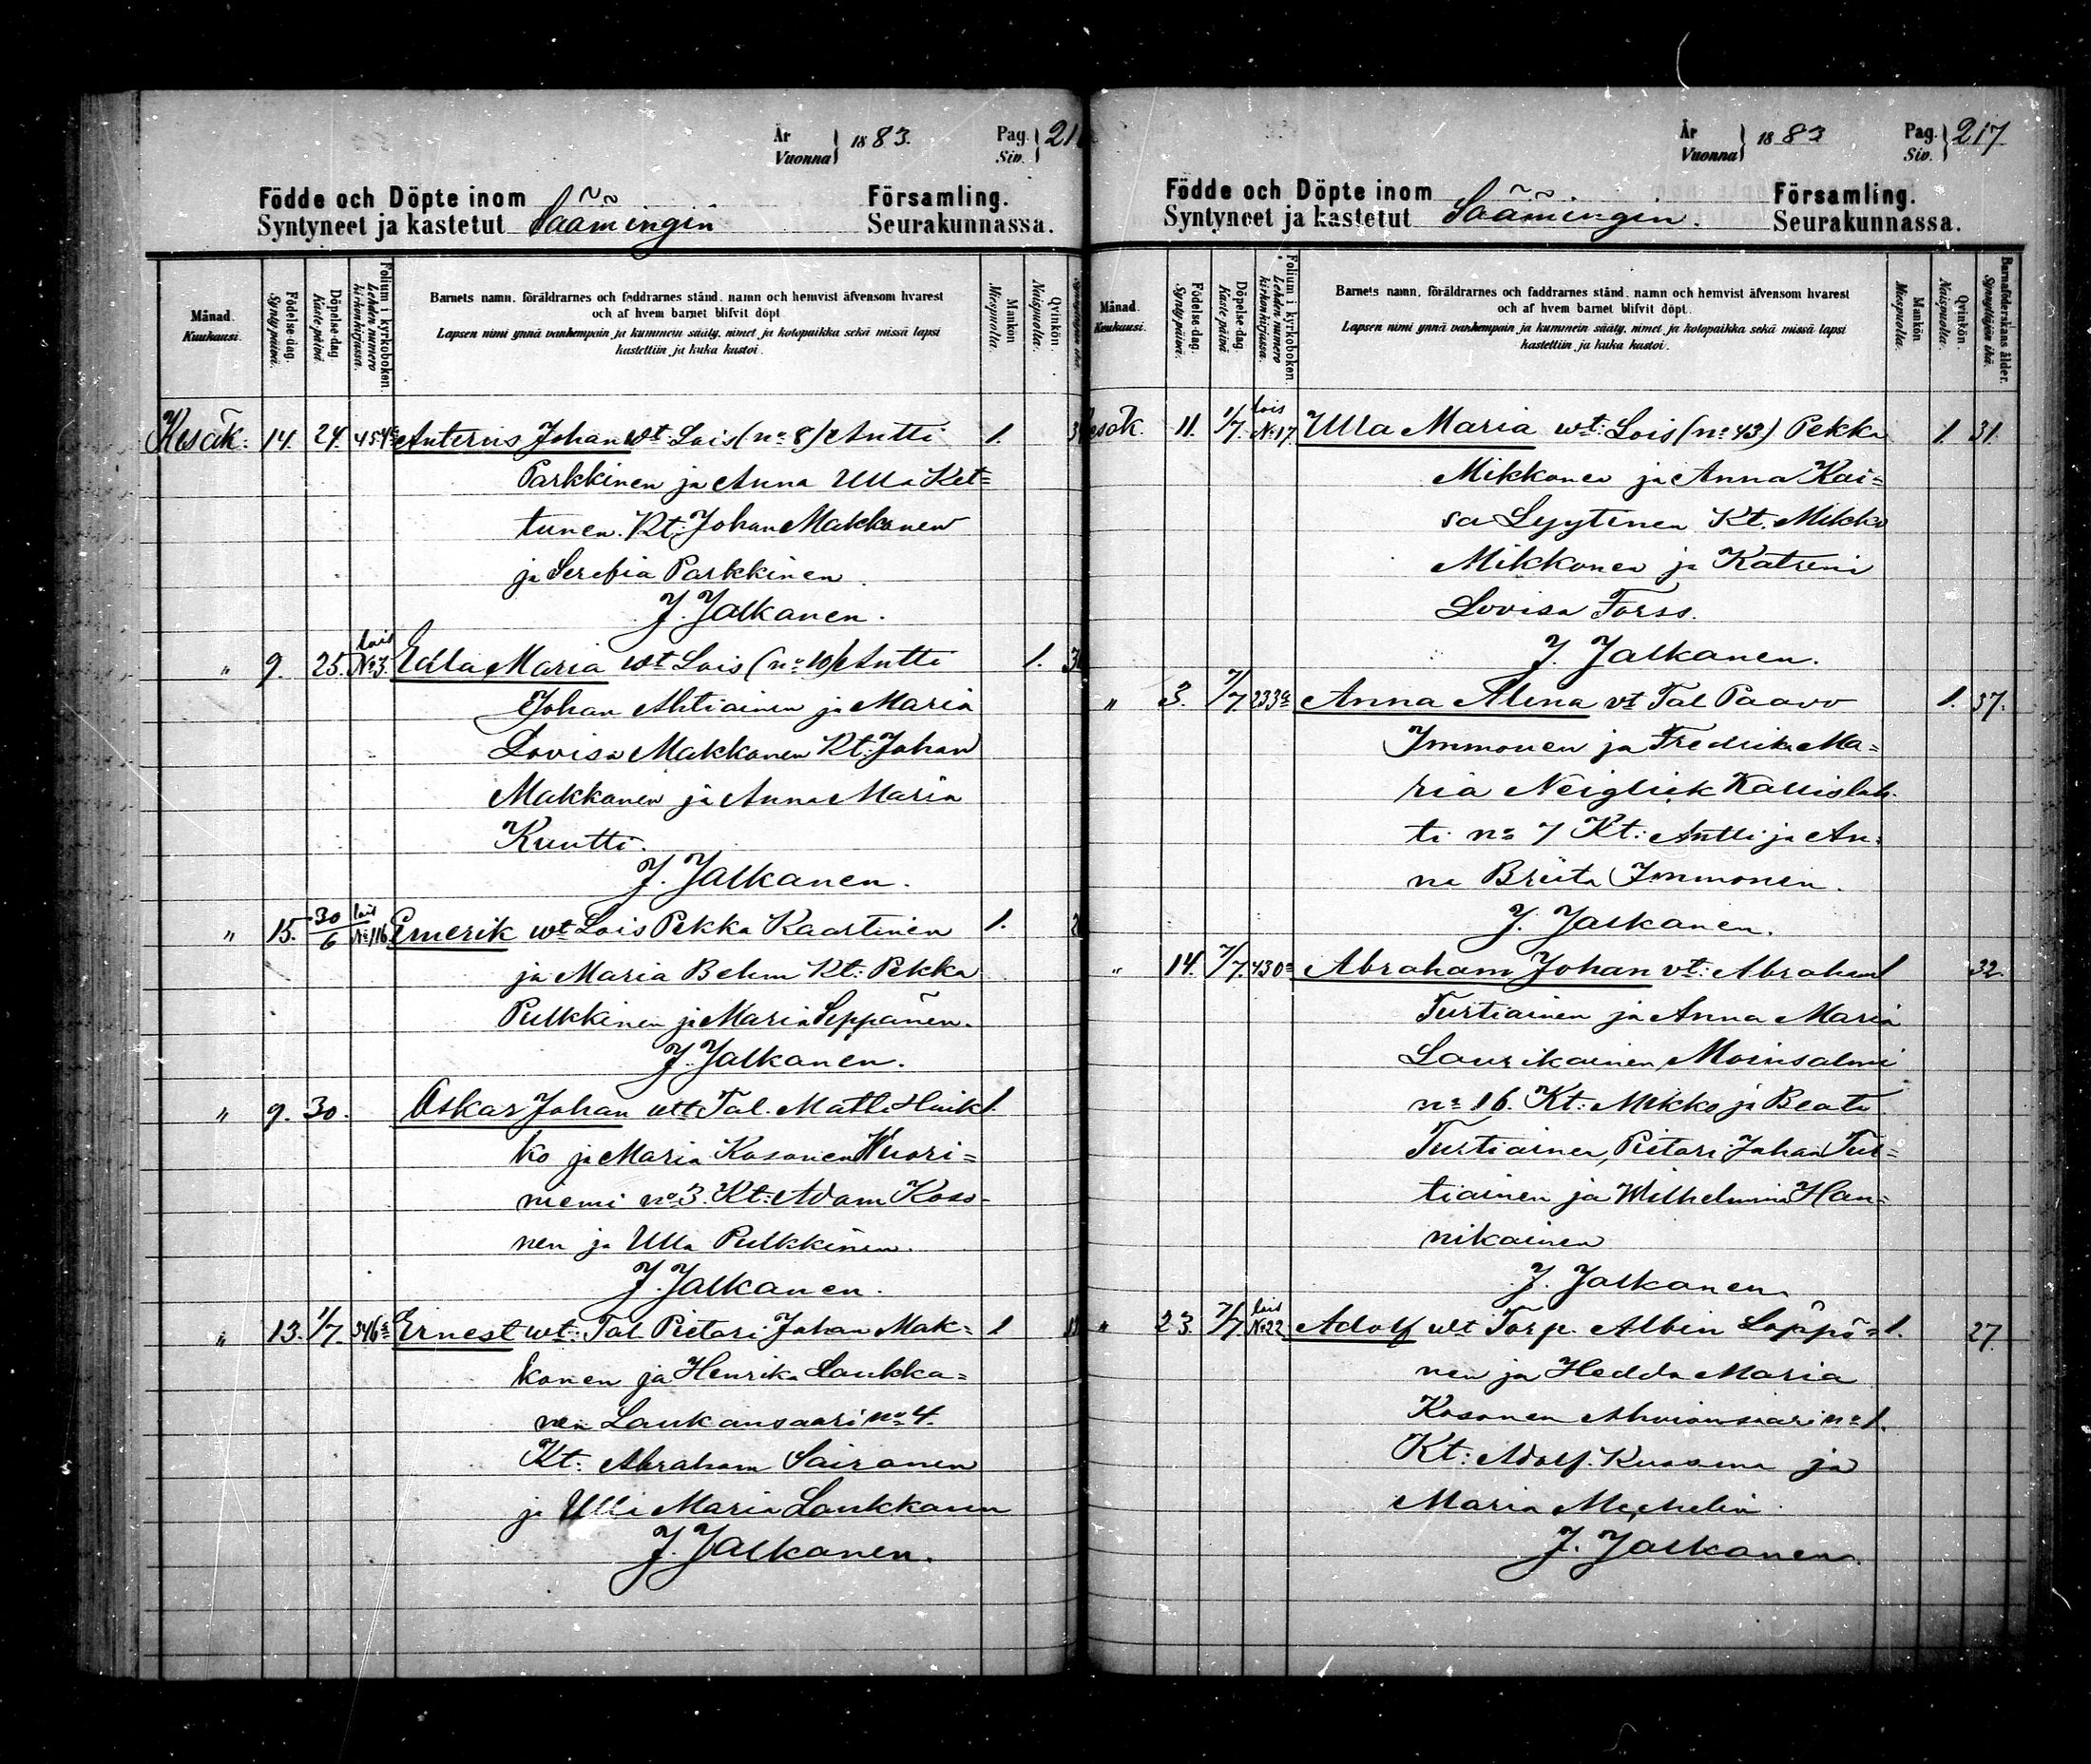 År
Vuonna } 1883.
Pag.
Siv. } 21
Födde och Döpte inom
Syntyneet ja kastetut Säämingin
Församling.
Seurakunnassa.
Månad.
Kuukausi.
Födelse-dag.
Synty päivä.
Döpelse-dag.
Kaste päivä.
Folium i kyrkoboken.
Lehden numero
kirkonkirjassa.
Barnets namn, föräldrarnes och faddrarnes stånd, namn och hemvist äfvensom hvarest
och af hvem barnet blifvit döpt.
Lapsen nimi ynnä vanhempain ja kummein sääty, nimet ja kotopaikka sekä missä lapsi
kastettiin ja kuka kastoi.
Mankön
Miespuolia.
Qvinkön.
Naispuolia.
Kesäk. 14. 24. 454 Anterus Johan wt. Lois (no 8) Antti 1.
Parkkinen ja Anna Ulla Ket=
tunen. Kt. Johan Makkonen
ja Serefia Parkkinen
J. Jalkanen.
" 9. 25. lois No 3. Edla Maria wt Lois (no 10) Antti 1.
Johan Ahtiainen ja Maria
Lovisa Makkonen Kt: Johan
Makkonen ja Anna Maria
Kuntti.
J. Jalkanen.
" 15. 30/6 lois No 116 Emerik wt Lois Pekka Kaartinen 1.
ja Maria Behm Kt: Pekka
Pulkkinen ja Maria Seppänen.
J. Jalkanen.
" 9. 30. Oskar Johan wtt Tal. Matti Huik 1.
ko ja Maria Kosonen Wuori=
niemi no 3. Kt: Adam Koso-
nen ja Ulla Pulkkinen.
J. Jalkanen.
" 13. 1/7. 346 Ernest wt: Tal. Pietari Johan Mak= 1
konen ja Henrika Laukka=
nen Laukansaari no 4.
Kt: Abraham Sairanen
ja Ulla Maria Laukkanen
J. Jalkanen.
År
Vuonna } 1883
Pag.
Siv. } 217.
Födde och Döpte inom
Syntyneet ja kastetut Säämingin.
Församling.
Seurakunnassa.
Månad.
Kuukausi.
Födelse-dag.
Synty päivä.
Döpelse-dag.
Kaste päivä
Folium i kyrkoboken.
Lehden numero
kirkonkirjassa.
Barnets namn, föräldrarnes och faddrarnes stånd, namn och hemvist äfvensom hvarest
och af hvem barnet blifvit döpt.
Lapsen nimi ynnä vanhempain ja kummein sääty, nimet ja kotopaikka sekä missä lapsi
kastettiin ja kuka kastoi.
Mankön
Miespuolia.
Qvinkön.
Naispuolia.
Barnaföderskans ålder.
Synnyttäjän ikä.
esäk. 11. 1/7. lois No 17 Ulla Maria wt: Lois (no 43) Pekka 1 31.
Mikkonen ja Anna Kai=
sa Lyytinen Kt. Mikko
Mikkonen ja Katrini
Lovisa Forss.
J. Jalkanen.
" 3. 7/7 233 Anna Alina vt Tal Paavo 1. 37.
Immonen ja Fredrika Ma=
ria Neiglick Kallislah.
ti no 7 Kt: Antti ja An-
na Briita Immonen.
J. Jalkanen.
" 14. 7/7 430 Abraham Johan vt: Abraham 1 32.
Turtiainen ja Anna Maria
Laurikainen, Moinsalmi
no 16. Kt: Mikko ja Beata
Turtiainen, Pietari Johan Tur=
tiainen ja Wilhelmina Han=
nikainen
J. Jalkanen
" 23. 7/7 lois No 22 Adolf wt Torp. Albin Loppo= 1. 27.
nen ja Hedda Maria
Kosonen Ahvionsaari no 1.
Kt: Adolf Kuosma ja
Maria Mechelin
J. Jalkanen.